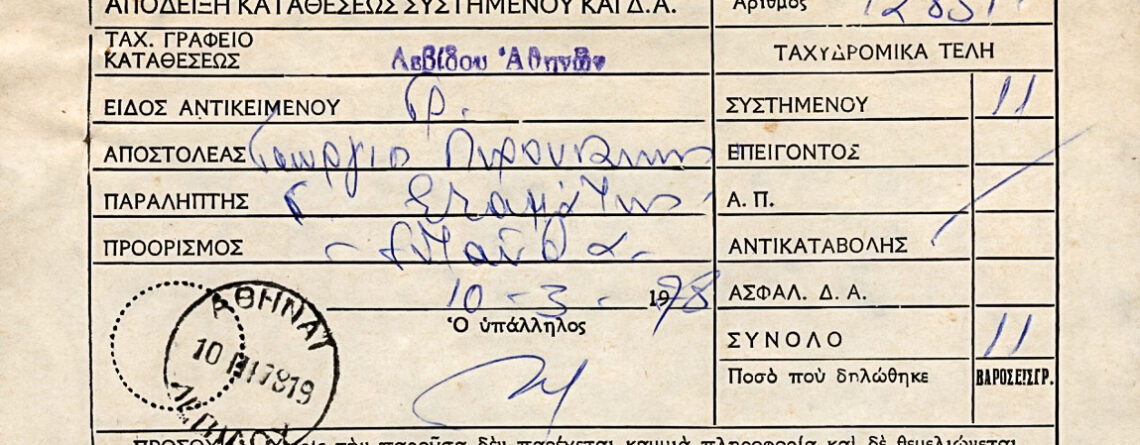 ΑΠΟΔΕΙΞΗ ΚΑΤΑΘΕΣΕΩΣ ΣΥΣΤΗΜΕΝΟΥ ΚΑΙ Δ.Α.
Αριθμός
ΤΑΧ. ΓΡΑΦΕΙΟ
ΚΑΤΑΘΕΣΕΩΣ Λεβίδου Ἀθηνῶν
ΤΑΧΥΔΡΟΜΙΚΑ ΤΕΛΗ
ΕΙΔΟΣ ΑΝΤΙΚΕΙΜΕΝΟΥ Γρ.
ΣΥΣΤΗΜΕΝΟΥ 11
ΑΠΟΣΤΟΛΕΑΣ
ΕΠΕΙΓΟΝΤΟΣ
ΠΑΡΑΛΗΠΤΗΣ
Α. Π.
ΠΡΟΟΡΙΣΜΟΣ
ΑΝΤΙΚΑΤΑΒΟΛΗΣ
10 - 3 - 1978
ΑΣΦΑΛ. Δ. Α.
Ὁ ὑπάλληλος
ΣΥΝΟΛΟ 11
Ποσὸ ποὺ δηλώθηκε
ΒΑΡΟΣ ΕΙΣ ΓΡ.
ΑΘΗΝΑΙ
10 III 78 19
τὴν παροῦσα δὲν παρέχεται καμμιὰ πληροφορία καὶ δὲ θεμελιώνεται